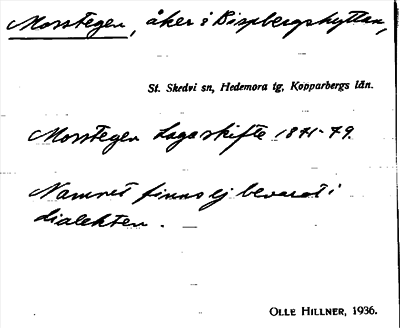 Morstegen, åker i Bispbergshyttan,
St. Skedvi sn, Hedemora tg, Kopparbergs län.
Morstegen Laga skifte 1871-79.
Namnet finns ej bevarat i
dialekten.
OLLE HILLNER, 1936.